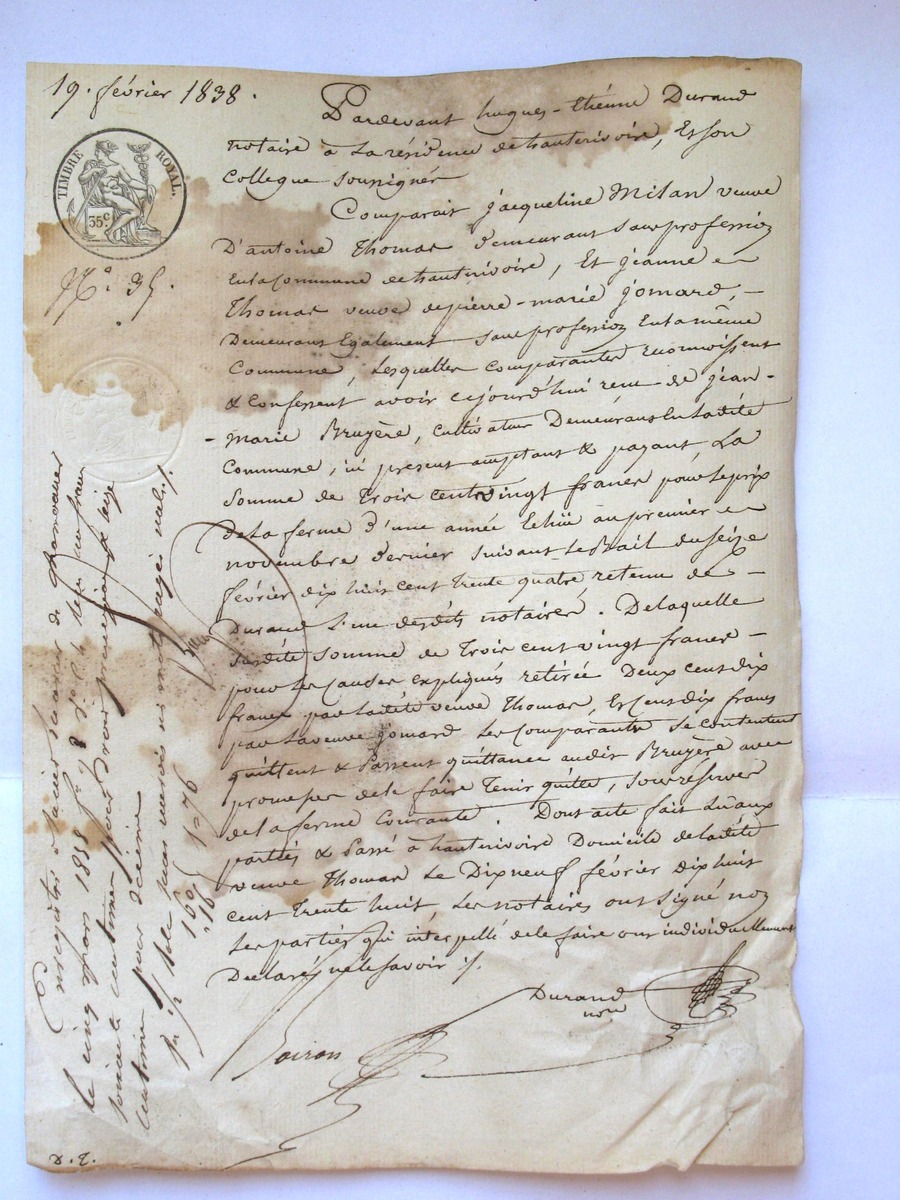 19. février 1838.
Pardevant hugues-Etiénne Durand
notaire à La résidence de hauterivoire, Et Son
Collegue Soussignés
TIMBRE ROYAL.
35 c
Comparait jacqueline Milan veuve
D'antoine Thomas demeurant Sans profession
En la Commune de hauterivoire, Et jeanne
N.o 35.
Thomas veuve de pierre-marie jomard,
Demeurant Egalement Sans profession En la même
Commune, Lesquelles Comparantes reconnoissent
& Confessent avoir cejourd'hui reçu de jean-
-marie Bruyère, Cultivateur Demeurant En Ladite
Commune, ici présent acceptant & payant, La
Somme de Trois Cent vingt francs pour le prix
De la ferme d'une année Echüe au premier
novembre dernier Suivant Le Bail du Seize
février dix huit Cent Trente quatre retenu de
Durand L'un desdits notaires. De laquelle
Susdite Somme de Trois Cent vingt francs
pour les Causes Expliqués retirée Deux Cent dix
francs par Ladite veuve Thomas, Et Cent dix francs
par La veuve jomard Les Comparantes Se Contentent
quittent & Passent quittance audit Bruyère avec
promesse de le faire Tenir quitte, Sous réserve
de la ferme Courante. Dont acte fait Lu aux
parties & Passé à hauterivoire Domicile de Ladite
veuve Thomas Le Dix neuf février dix huit
Cent Trente huit, Les notaires ont Signé non
Les parties qui interpellé de le faire ont individuellement
Déclarés ne le Savoir ./.
Durand
nore
Enregistré à Saint Laurent de Chamousset
le cinq mars 1838 f.o
Soixante centimes pour Droit principal & Seize
Centimes pour décime
mots rayés nuls ./.
1 60
" 16
1=76